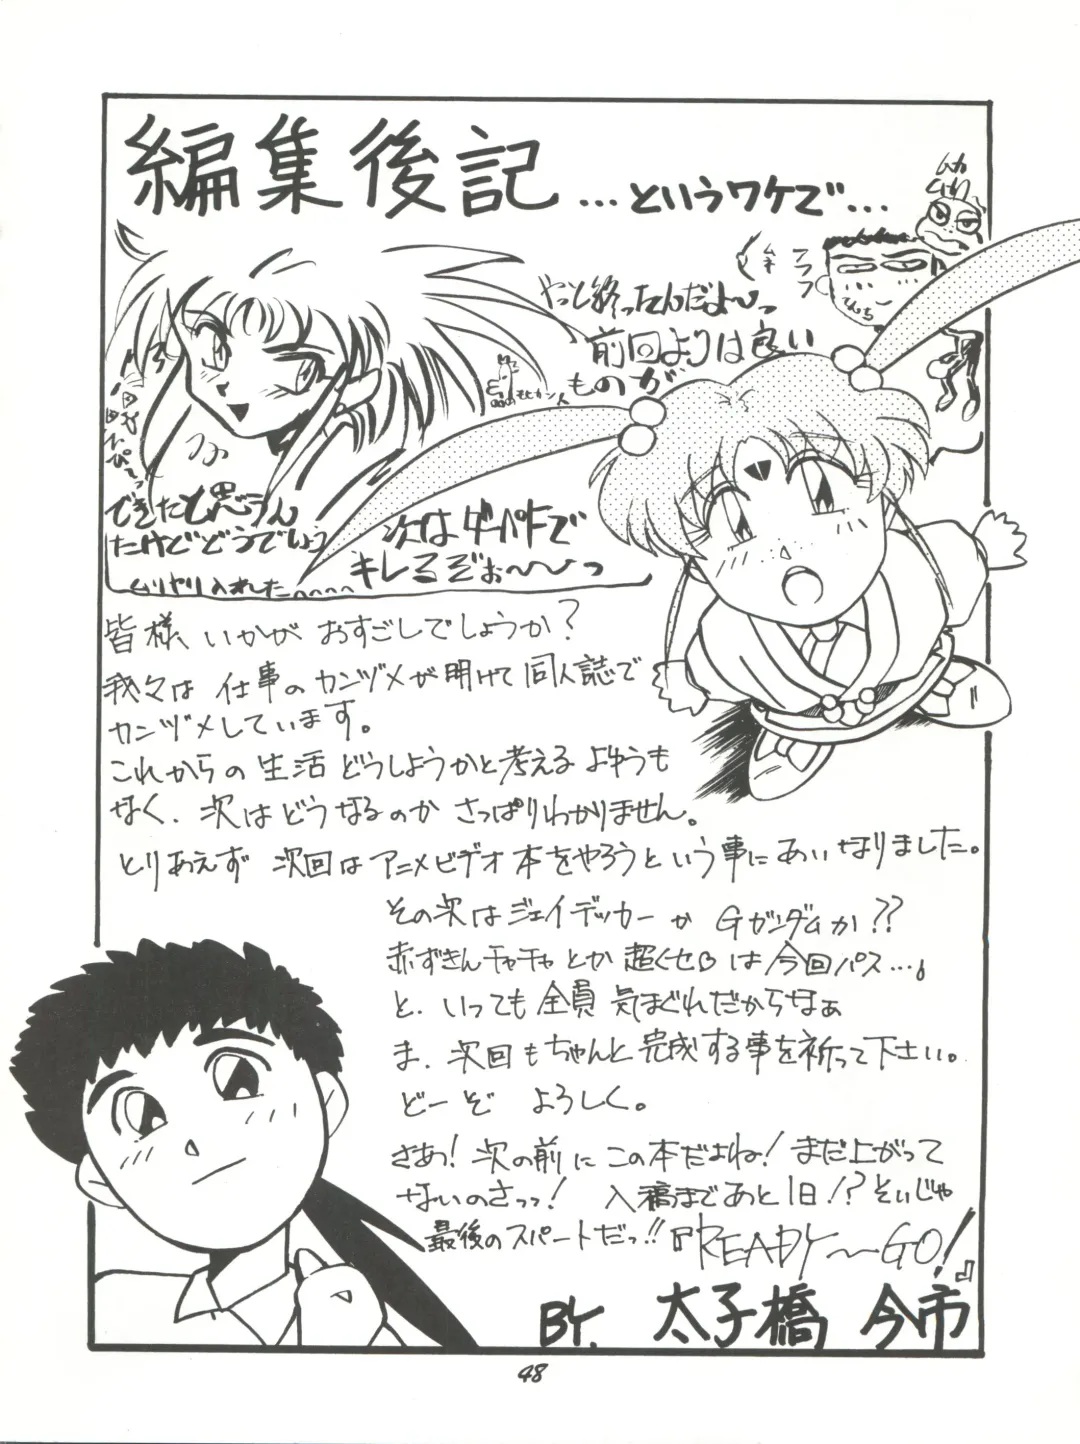 編集後記 …というワケで…
やっと終ったんだよ〜っ
前回よりは良い
ものが
できたと思うん
だけどどうでしょう
ムリヤリ入れました
モヒカン人
次はダーパトで
キレるぞぉ〜〜っ
皆様、いかがおすごしでしょうか?
我々は仕事のカンヅメが明けて同人誌で
カンヅメしています。
これからの生活どうしようかと考えるよゆうも
なく、次はどうなるのかさっぱりわかりません。
とりあえず次回はアニメビデオ本をやろうという事にあいなりました。
その次はジェイデッカーかGガンダムか??
赤ずきんチャチャとか超くせぃは今回パス…。
と、いっても全員気まぐれだからなぁ
ま、次回もちゃんと完成する事を祈って下さい。
どーぞよろしく。
さあ!次の前にこの本だよね!まだ上がって
ないのさっっ!入稿まであと1日!?そいじゃ
最後のスパートだっ!!『READY〜GO!』
BY. 太子橋 今市
48